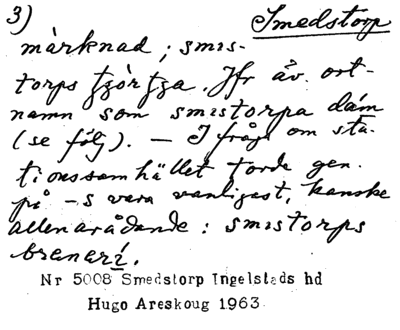 3) Smedstorp
màrknad ; smɪs-
torps ʄɀórʄɀa. Jfr äv. ort-
namn som smɪstorpa dám
(se följ). — I fråga om sta-
tionssamhället torde gen.
på -s vara vanligast, kanske
allenarådande : smɪstorps
brenerí̱.
Nr 5008 Smedstorp Ingelstads hd
Hugo Areskoug 1963